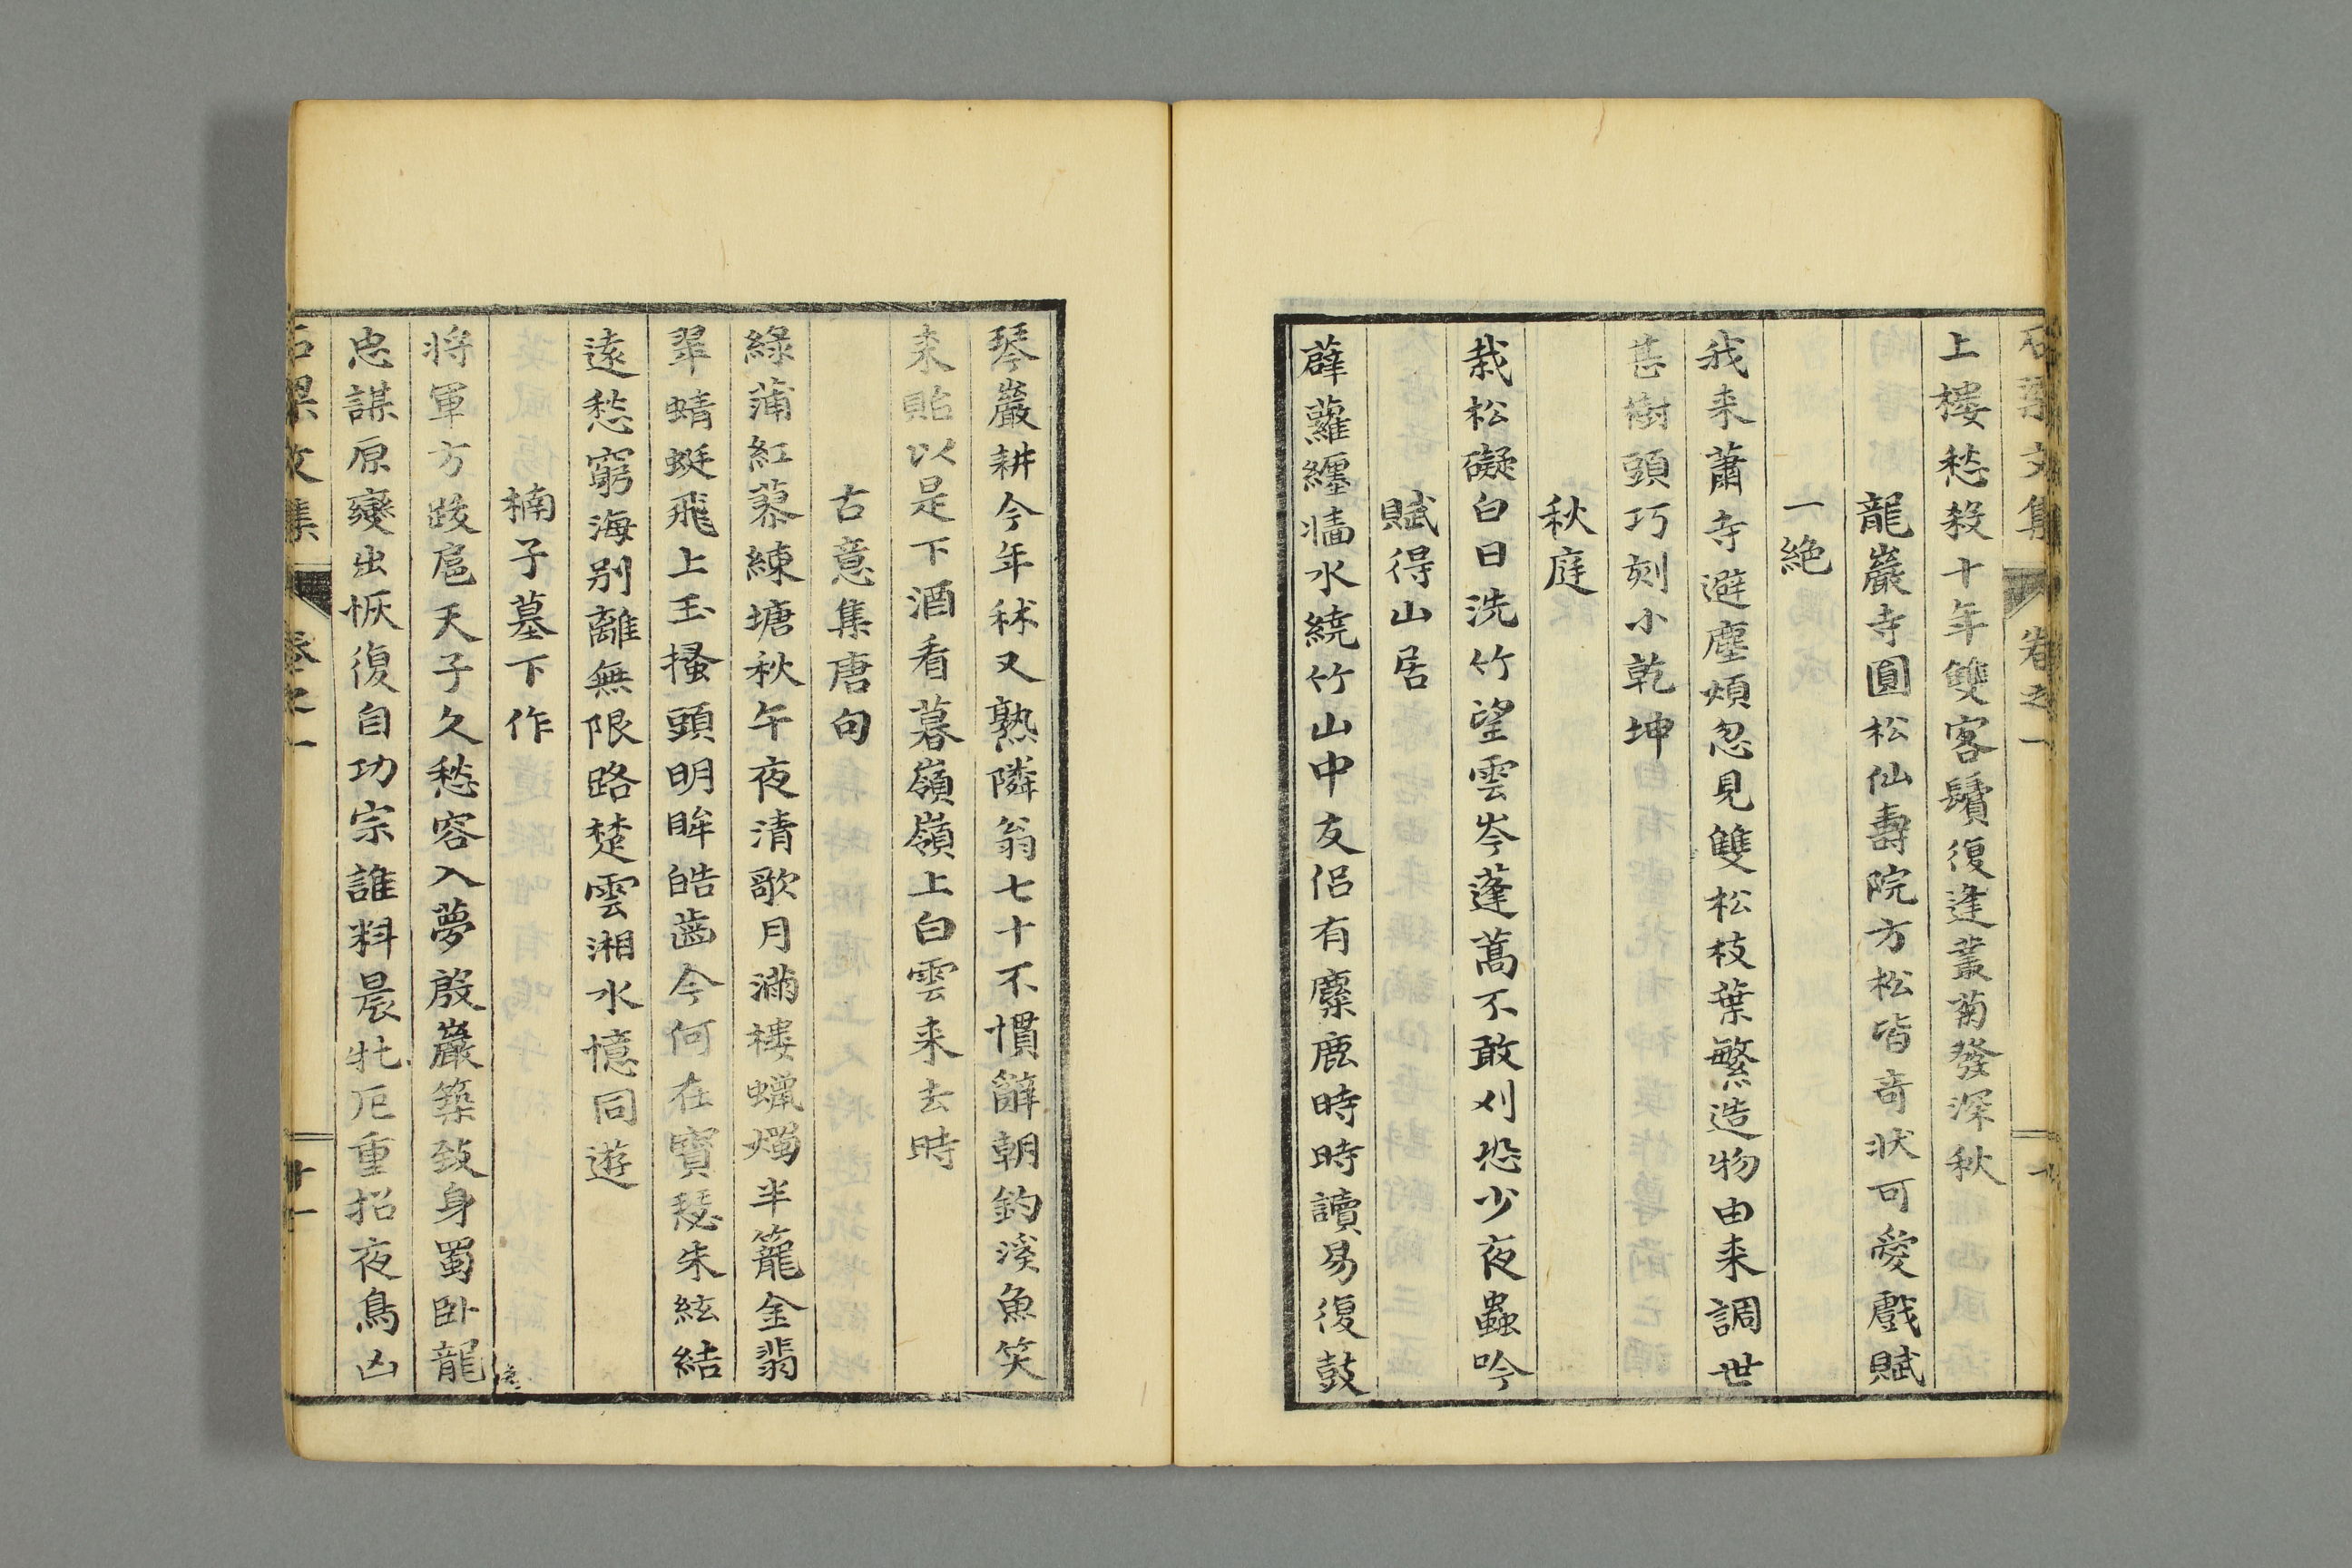 石梁文集 卷之一 十
上樓愁殺十年雙客鬢復逢叢菊發深秋
龍巖寺圓松仙壽院方松皆奇狀可愛戲賦
一絶
我来蕭寺避塵煩忽見雙松枝葉繁造物由来調世
甚樹頭巧刻小乾坤
秋庭
栽松礙白日洗竹望雲岑蓬蒿不敢刈恐少夜蟲吟
賦得山居
薜蘿纏墻水繞竹山中友侶有麋鹿時時讀易復鼓
琴巖耕今年秫又熟隣翁七十不慣辭朝釣溪魚笑
来貽以是下酒看暮嶺嶺上白雲来去時
古意集唐句
綠蒲紅蓼練塘秋午夜清歌月滿樓蠟燭半籠金翡
翠蜻蜓飛上玉搔頭明眸皓齒今何在寶瑟朱絃結
遠愁窮海別離無限路楚雲湘水憶同遊
楠子墓下作
将軍方跋扈天子久愁容入夢殷巖築致身蜀卧龍
忠謀原變出恢復自功宗誰料晨牝厄重招夜鳥凶
石梁文集 卷之一 十一